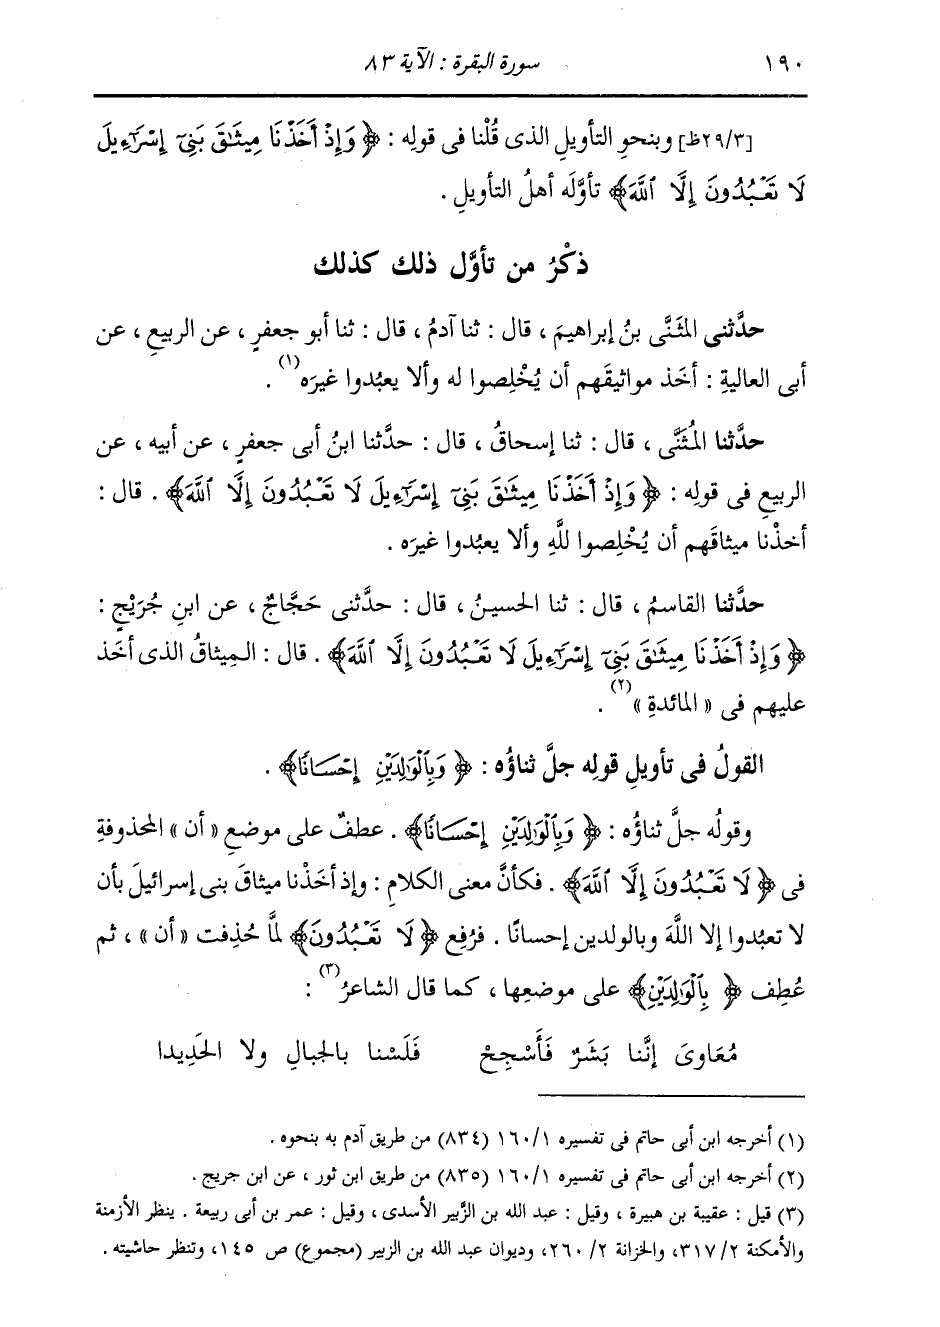 ١٩٠ سورة البقرة : الآية ٨٣
[٢٩/٣ظ] وبنحوِ التأويلِ الذى قُلْنا فى قولِه : ﴿ وَإِذْ أَخَذْنَا مِيثَٰقَ بَنِىٓ إِسْرَٰٓءِيلَ
لَا تَعْبُدُونَ إِلَّا ٱللَّهَ ﴾ تأوَّلَه أهلُ التأويلِ .
ذكْرُ من تأوَّل ذلك كذلك
حدَّثنى المثَنَّى بنُ إبراهيمَ ، قال : ثنا آدمُ ، قال : ثنا أبو جعفرٍ ، عن الربيعِ ، عن
أبى العاليةِ : أخَذ مواثيقَهم أن يُخْلِصوا له وألا يعبُدوا غيرَه(١) .
حدَّثنا المُثَنَّى ، قال : ثنا إسحاقُ ، قال : حدَّثنا ابنُ أبى جعفرٍ ، عن أبيه ، عن
الربيعِ فى قولِه : ﴿ وَإِذْ أَخَذْنَا مِيثَٰقَ بَنِىٓ إِسْرَٰٓءِيلَ لَا تَعْبُدُونَ إِلَّا ٱللَّهَ ﴾ . قال :
أخذْنا ميثاقَهم أن يُخْلِصوا للَّهِ وألا يعبُدوا غيرَه .
حدَّثنا القاسمُ ، قال : ثنا الحسينُ ، قال : حدَّثنى حَجَّاجٌ ، عن ابنِ جُرَيْجٍ :
﴿ وَإِذْ أَخَذْنَا مِيثَٰقَ بَنِىٓ إِسْرَٰٓءِيلَ لَا تَعْبُدُونَ إِلَّا ٱللَّهَ ﴾ . قال : الميثاقُ الذى أخَذ
عليهم فى « المائدةِ »(٢) .
القولُ فى تأويلِ قولِه جلَّ ثناؤُه : ﴿ وَبِٱلْوَٰلِدَيْنِ إِحْسَانًا ﴾ .
وقولُه جلَّ ثناؤُه : ﴿ وَبِٱلْوَٰلِدَيْنِ إِحْسَانًا ﴾ . عطفٌ على موضعِ « أن » المحذوفةِ
فى ﴿ لَا تَعْبُدُونَ إِلَّا ٱللَّهَ ﴾ . فكأنَّ معنى الكلامِ : وإذ أخَذْنا ميثاقَ بنى إسرائيلَ بأن
لا تعبُدوا إلا اللَّهَ وبالوالدين إحسانًا . فرُفِع ﴿ لَا تَعْبُدُونَ ﴾ لمَّا حُذِفت « أن » ، ثم
عُطِف ﴿ بِٱلْوَٰلِدَيْنِ ﴾ على موضعِها ، كما قال الشاعرُ(٣) :
مُعَاوِىَ إنَّنا بَشَرٌ فَأَسْجِحْ فَلَسْنا بالجبالِ ولا الحَدِيدا
(١) أخرجه ابن أبى حاتم فى تفسيره ١٦٠/١ (٨٣٤) من طريق آدم به بنحوه .
(٢) أخرجه ابن أبى حاتم فى تفسيره ١٦٠/١ (٨٣٥) من طريق ابن ثور ، عن ابن جريج .
(٣) قيل : عقيبة بن هبيرة ، وقيل : عبد الله بن الزَّبير الأسدى ، وقيل : عمر بن أبى ربيعة . ينظر الأزمنة
والأمكنة ٣١٧/٢، والخزانة ٢٦٠/٢، وديوان عبد الله بن الزبير (مجموع) ص ١٤٥، وتنظر حاشيته .